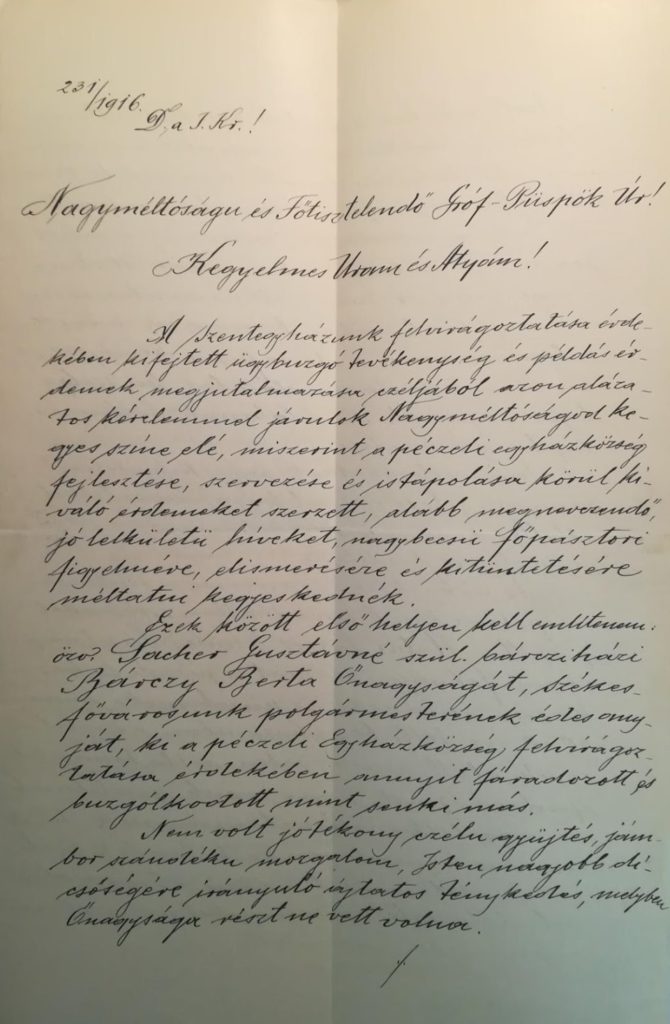 231/1916.
D. a J. Kr.!
Nagyméltóságu és Főtisztelendő Gróf-Püspök Úr!
Kegyelmes Uram és Atyám!
A Szentegyházunk felvirágoztatása érde-
kében kifejtett ügybuzgó tevékenység és példás ér-
demek megjutalmazása czéljából azon aláza-
tos kérelemmel járulok Nagyméltóságod ke-
gyes szine elé, miszerint a péczeli egyházközség
fejlesztése, szervezése és istápolása körül ki-
váló érdemeket szerzett, alább megnevezendő,
jó lelkületü híveket, nagybecsü főpásztori
figyelmére, elismerésére és kitüntetésére
méltatni kegyeskednék.
Ezek között első helyen kell emlitenem:
özv. Sacher Gusztávné szül. bárcziházi
Bárczy Berta Őnagyságát, Székes-
fővárosunk polgármesterének édes any-
ját, ki a péczeli Egyházközség felvirágoz-
tatása érdekében annyit fáradozott és
buzgólkodott mint senki más.
Nem volt jótékony czélu gyüjtés, jám-
bor szándéku mozgalom, Isten nagyobb di-
csőségére irányuló ájtatos ténykedés, melyben
Őnagysága részt ne vett volna.
./.